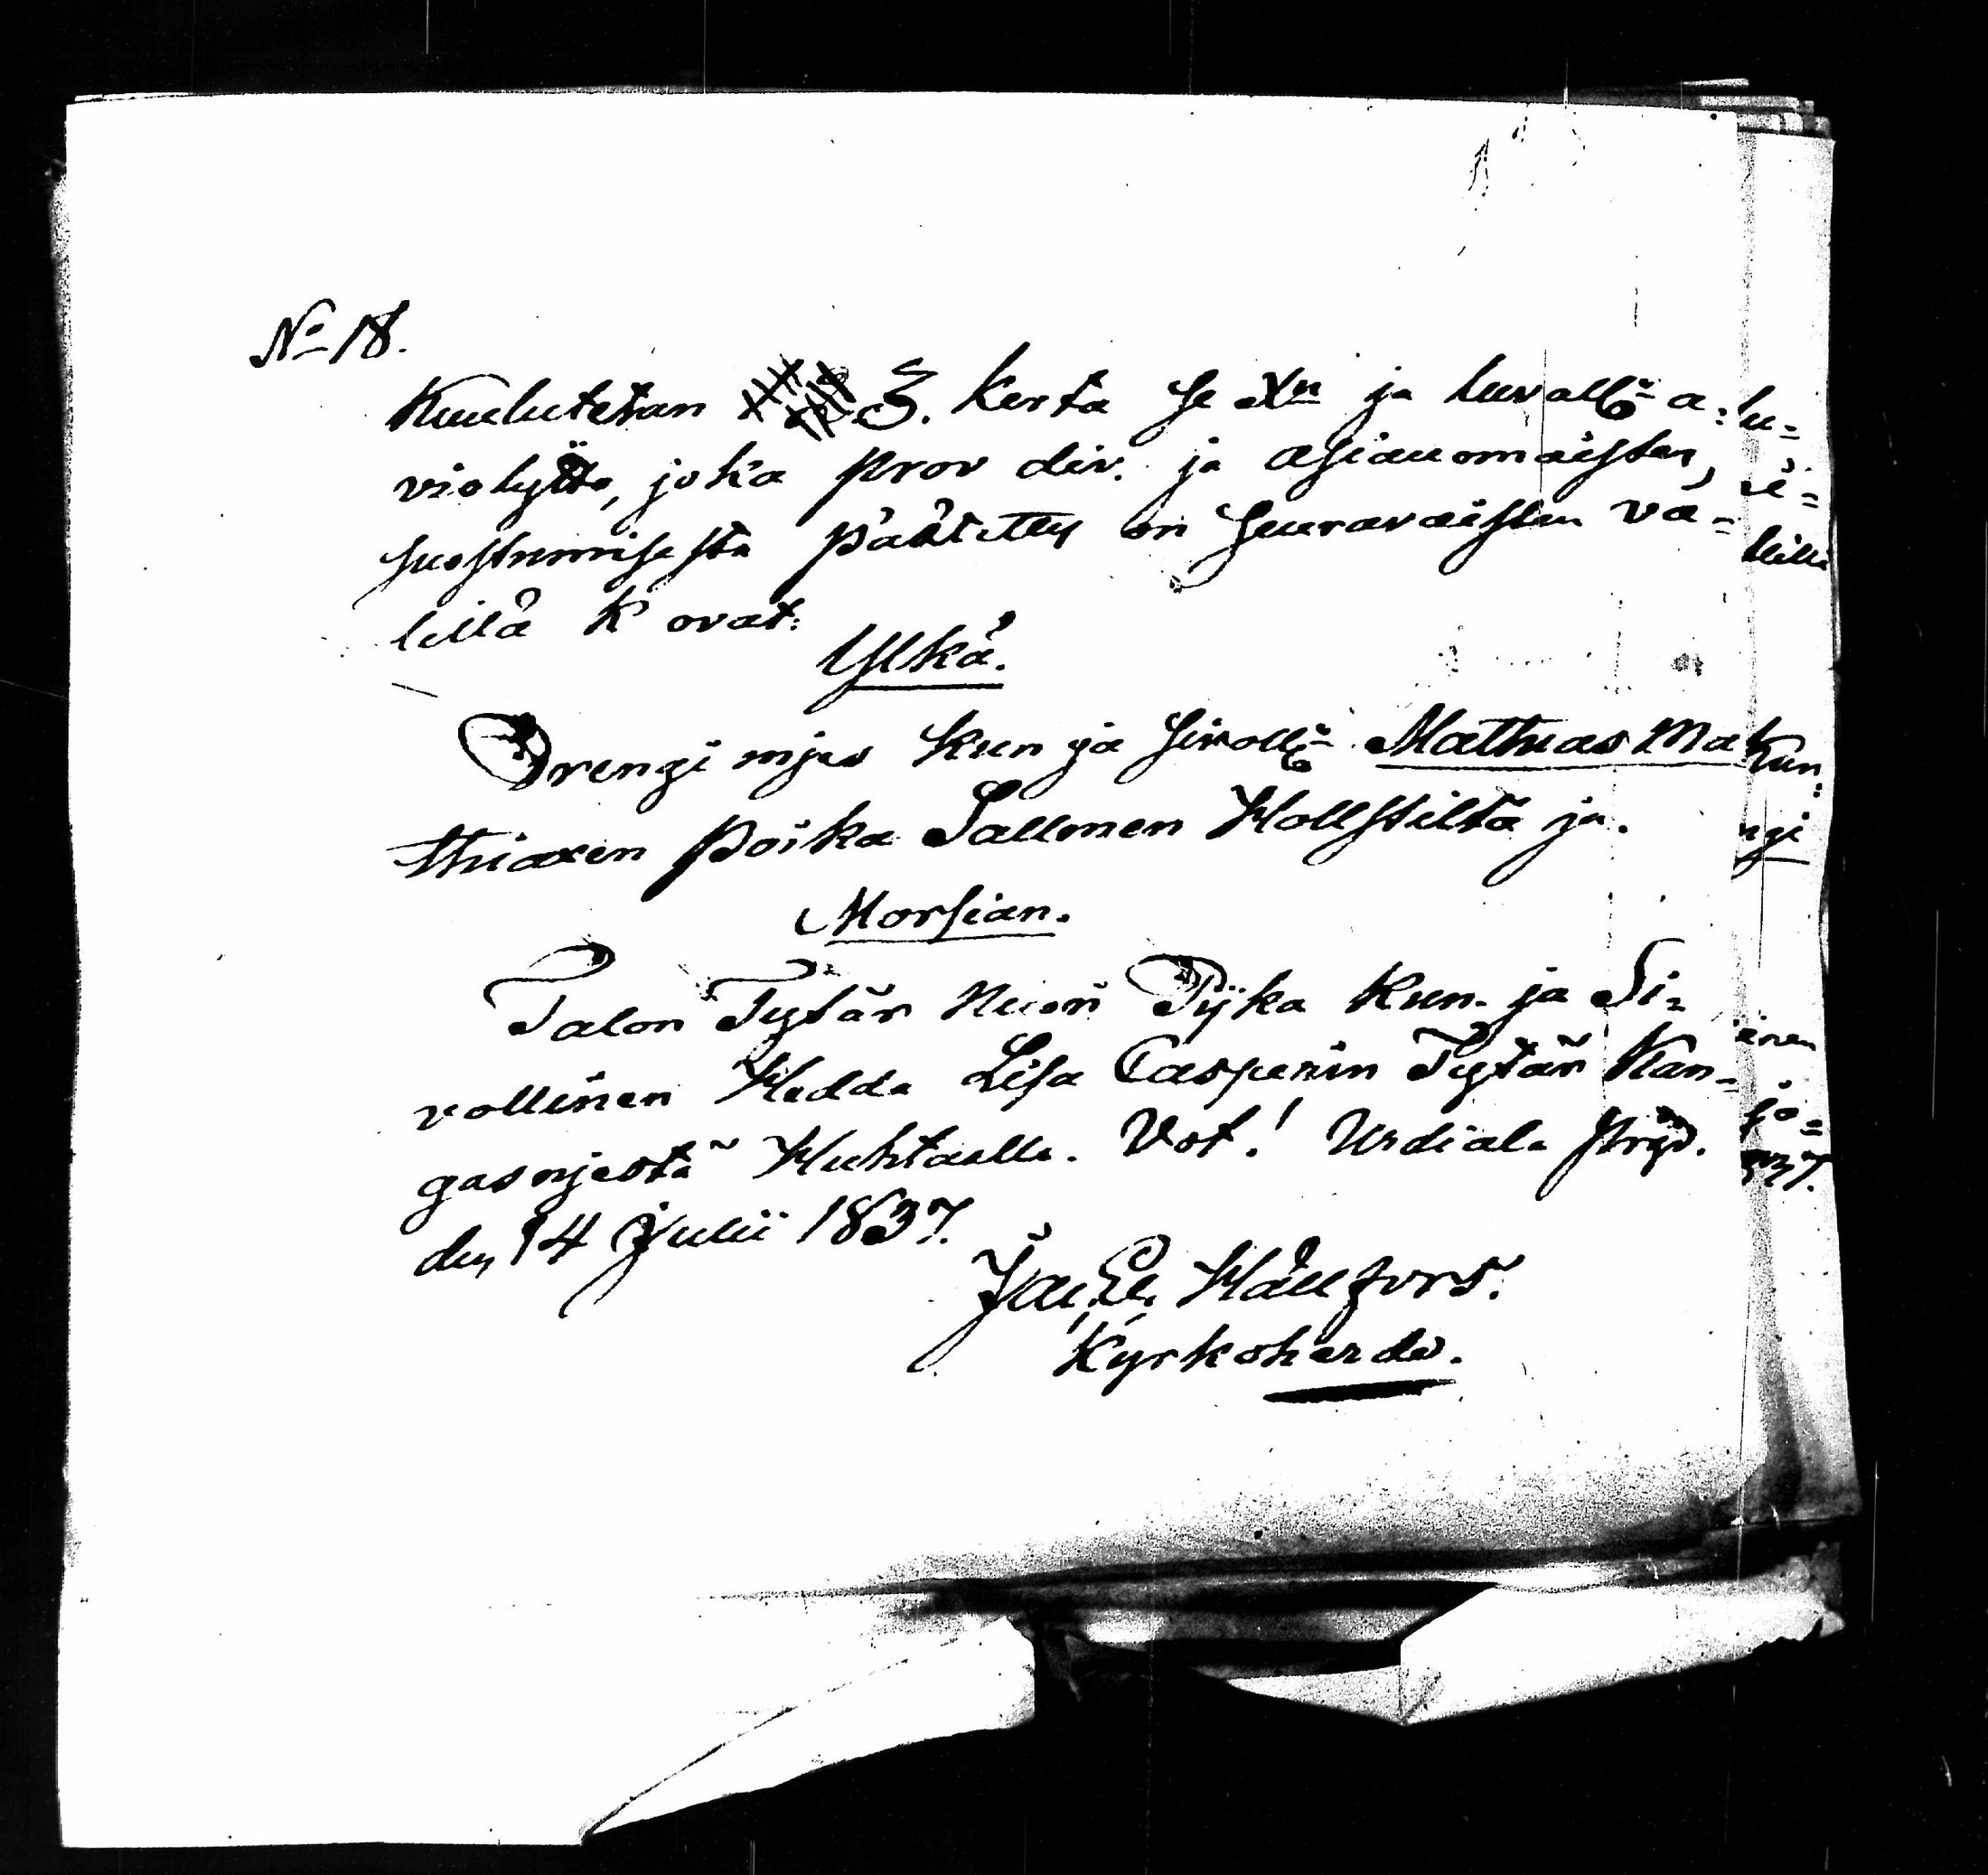 No 18.
Kuulutetan 3. Kerta se Xn ja luvall:n a:
violijtto, joka prov div. ja asianomaisten,
suostumisesta päätetty on seuravaisten vä-
lillä K ovat:
Ylkä.
Drengi mjes Kun ja sivoll:n Mathias Ma
thiaxen poika Sallmen Hollstiltä ja.
Morsian.
Talon Tytär Nuori Pijka Kun. ja Si-
vollinen Hedda Lisa Casperin Tytär Kan-
gasnjestä Huhtaalla. Vot.! Urdiala Prgd.
den 14 Julii 1837.
Jac. Hällfors.
Kyrkoherde.
lu-
lillä
Kun
ngi
inen
837.